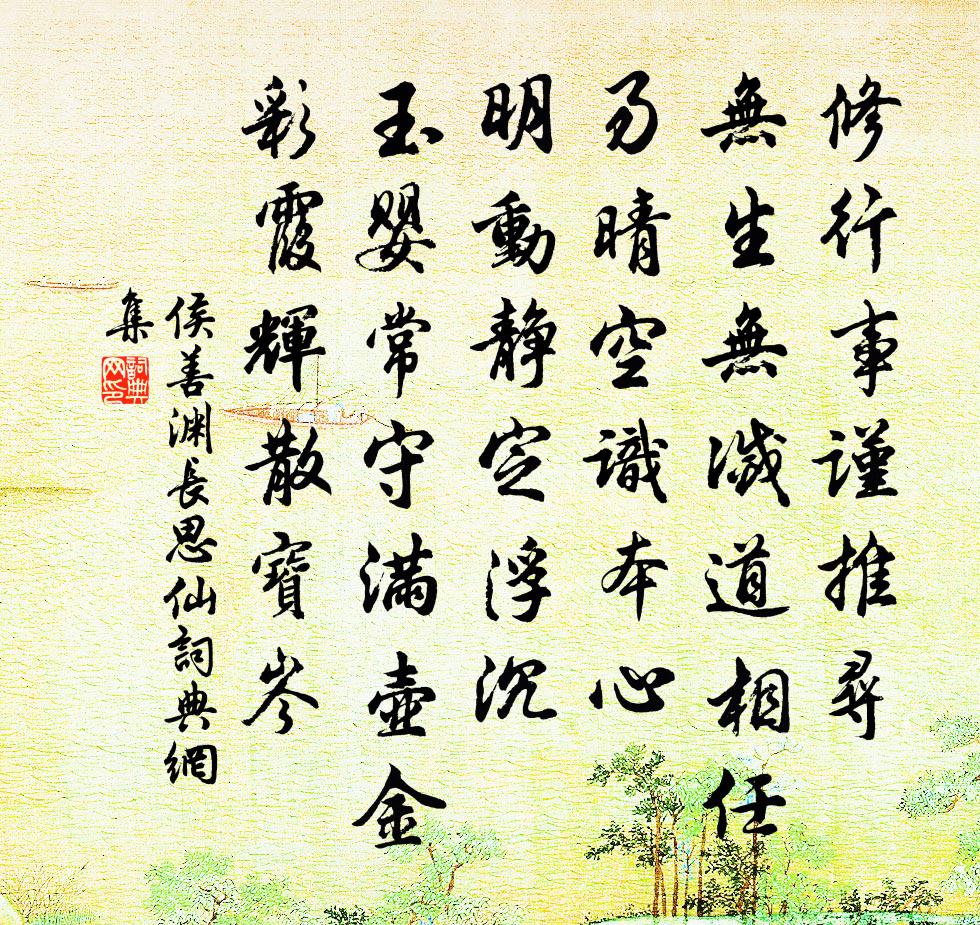 修行事謹推尋
無生無滅道相任
乃晴空識本心
明動静定浮沉
玉嬰常守满壺金
彩霞輝散寶岑
侯善渊長思仙詞典網
集
詞典网印